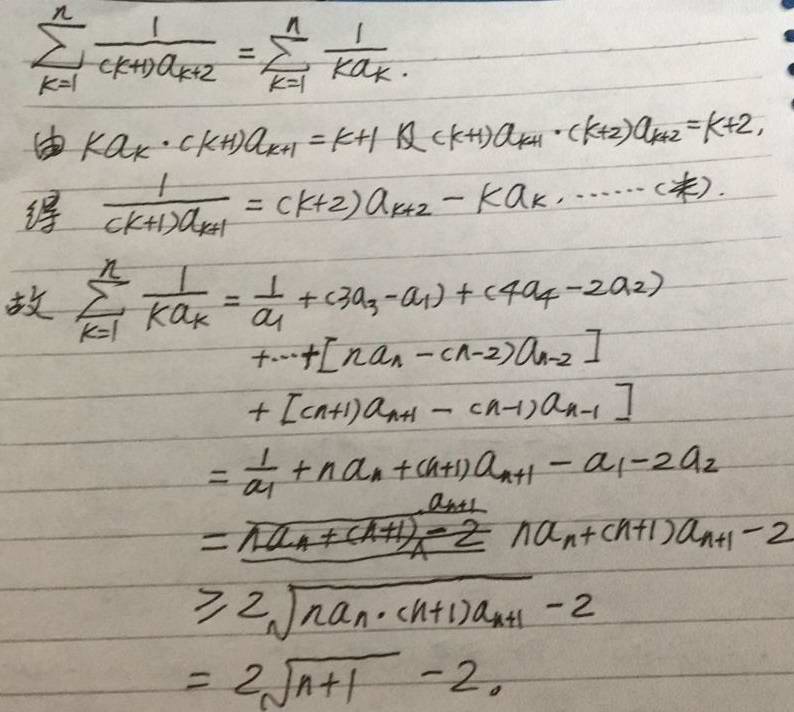 \sum_{k=1}^{n} \frac{1}{(k+1)a_{k+2}} = \sum_{k=1}^{n} \frac{1}{ka_k}.
由 ka_k·(k+1)a_{k+1}=k+1 及 (k+1)a_{k+1}·(k+2)a_{k+2}=k+2,
得 \frac{1}{(k+1)a_{k+1}} = (k+2)a_{k+2} - ka_k. ······(*).
故 \sum_{k=1}^{n} \frac{1}{ka_k} = \frac{1}{a_1} + (3a_3-a_1) + (4a_4-2a_2)
+···+[na_n-(n-2)a_{n-2}]
+[(n+1)a_{n+1} - (n-1)a_{n-1}]
= \frac{1}{a_1} + na_n + (n+1)a_{n+1} - a_1 - 2a_2
= na_n+(n+1)a_{n+1}-2 na_n+(n+1)a_{n+1}-2
≥ 2\sqrt{na_n·(n+1)a_{n+1}} - 2
= 2\sqrt{n+1} - 2。